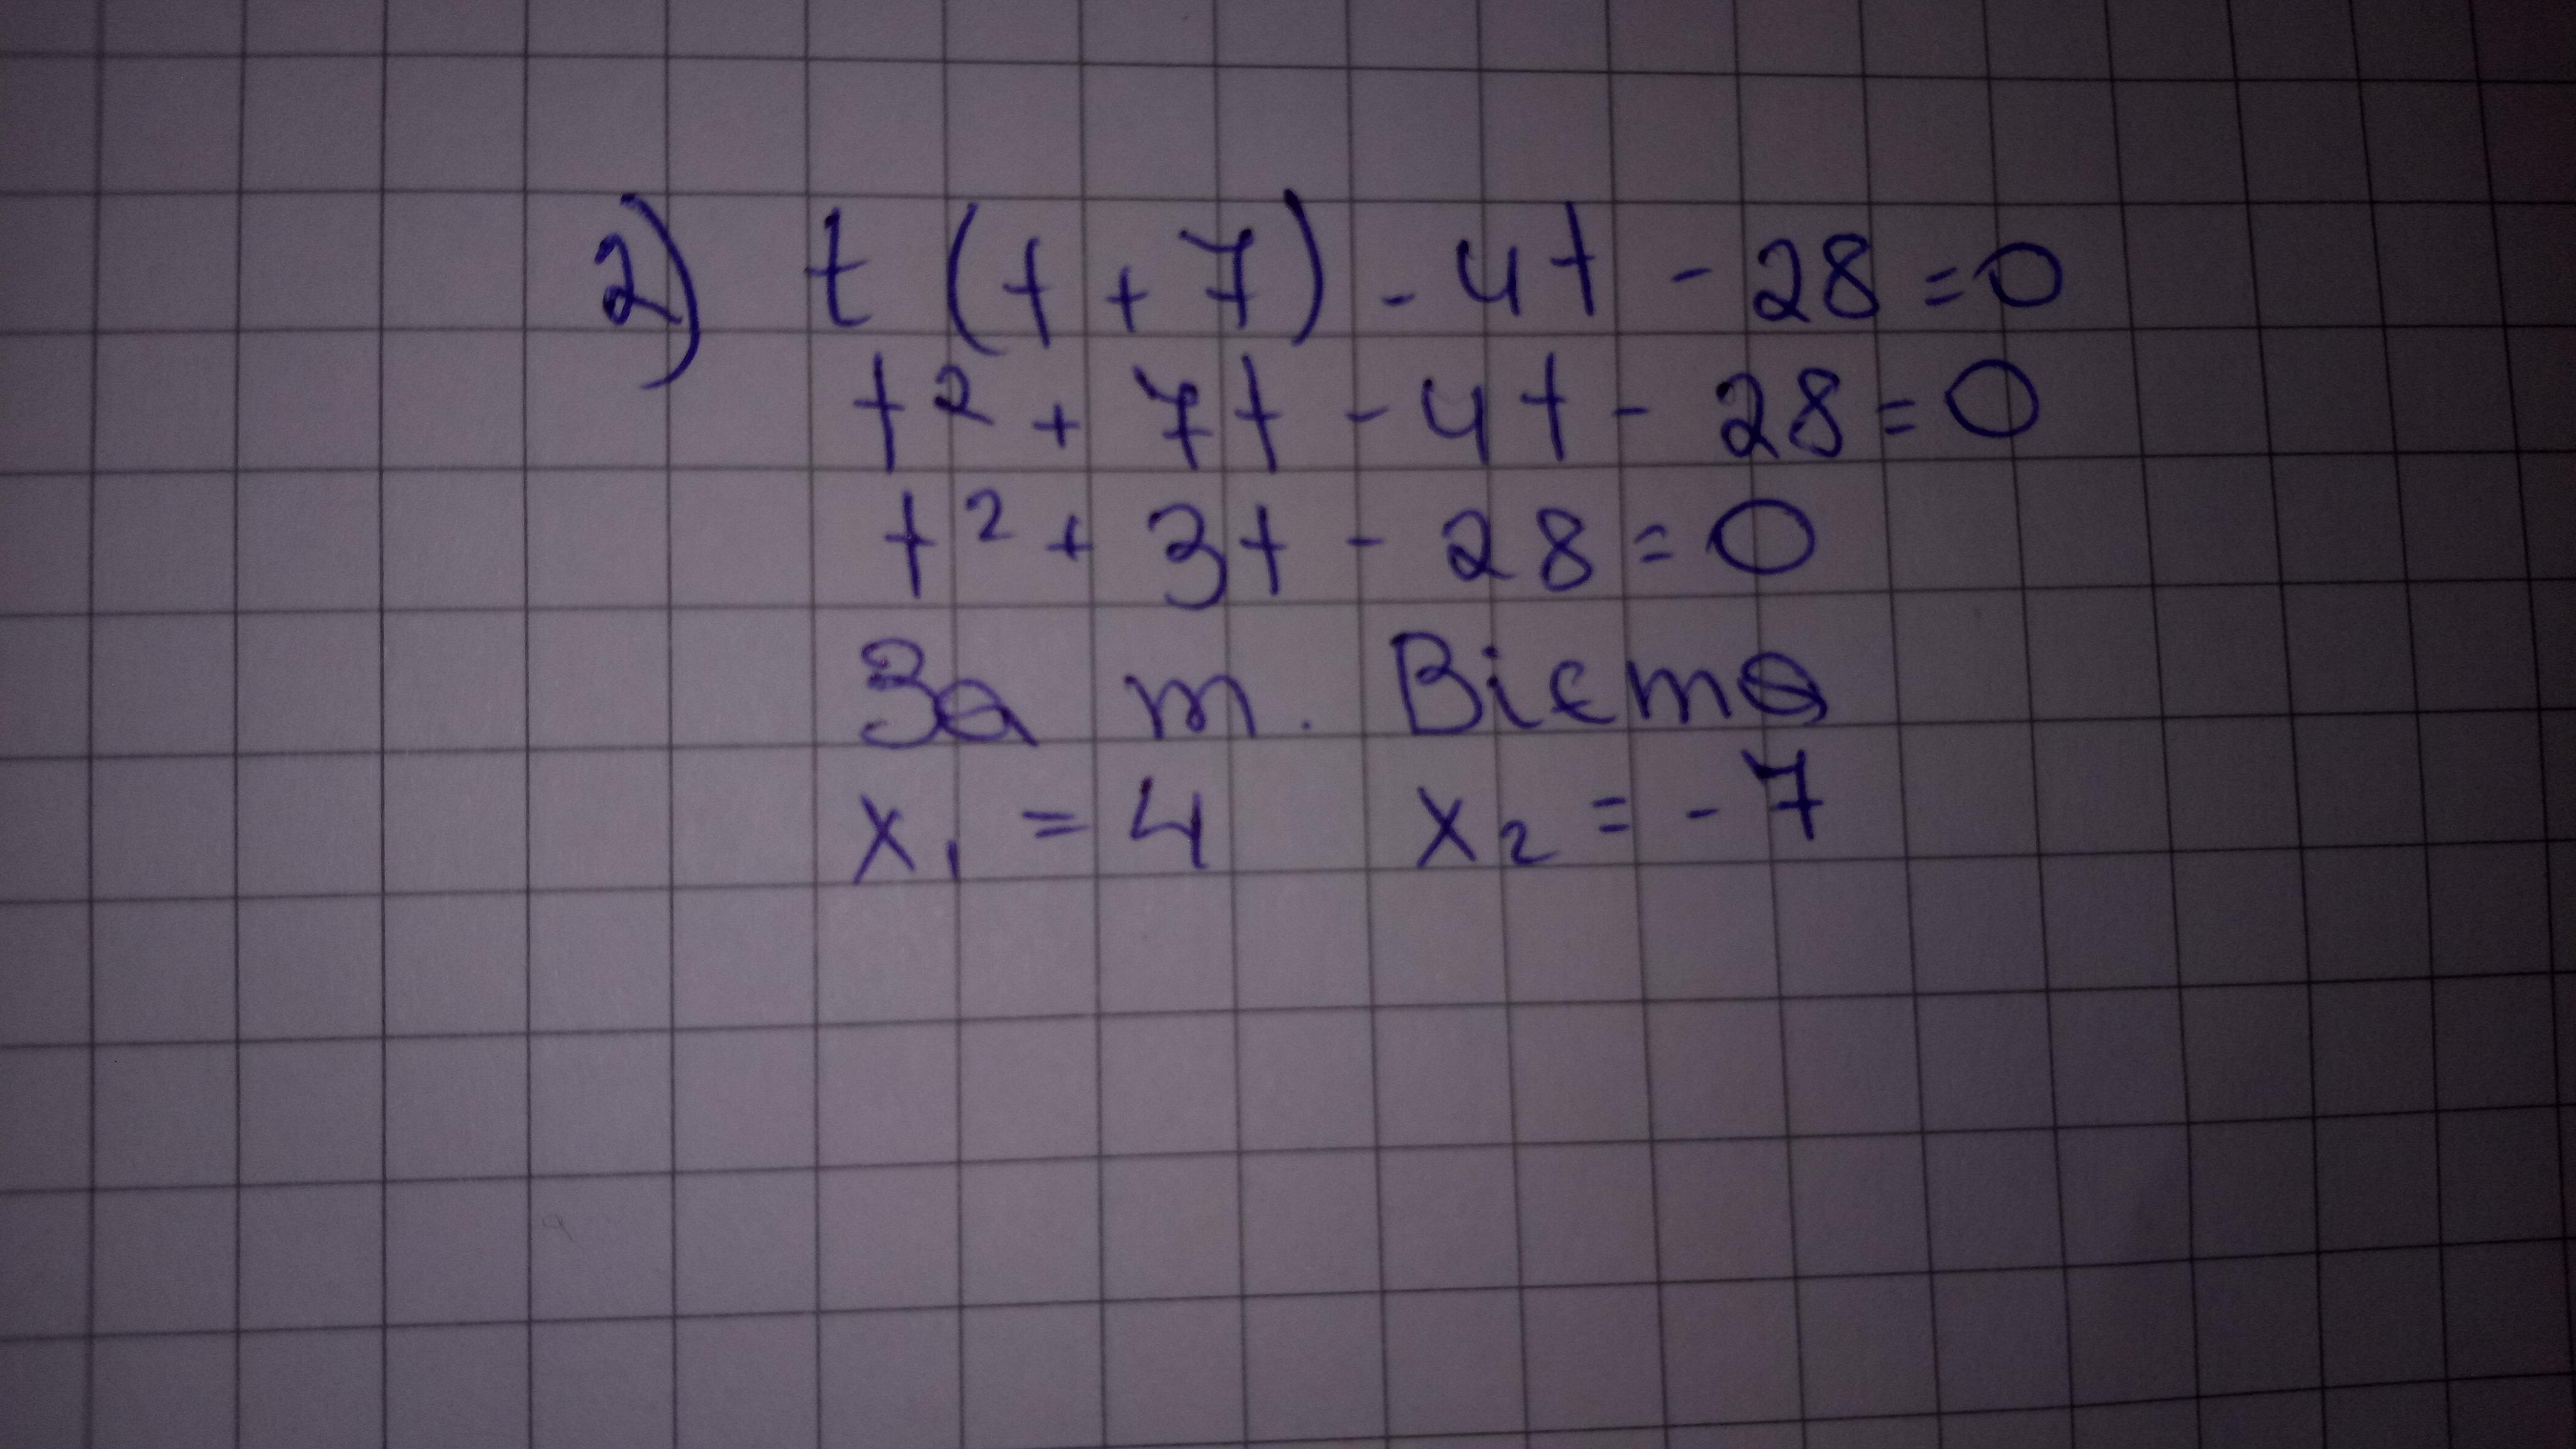 2) t(t+7)-4t-28=0
t²+7t-4t-28=0
t²+3t-28=0
За т. Вієта
x₁=4 x₂=-7